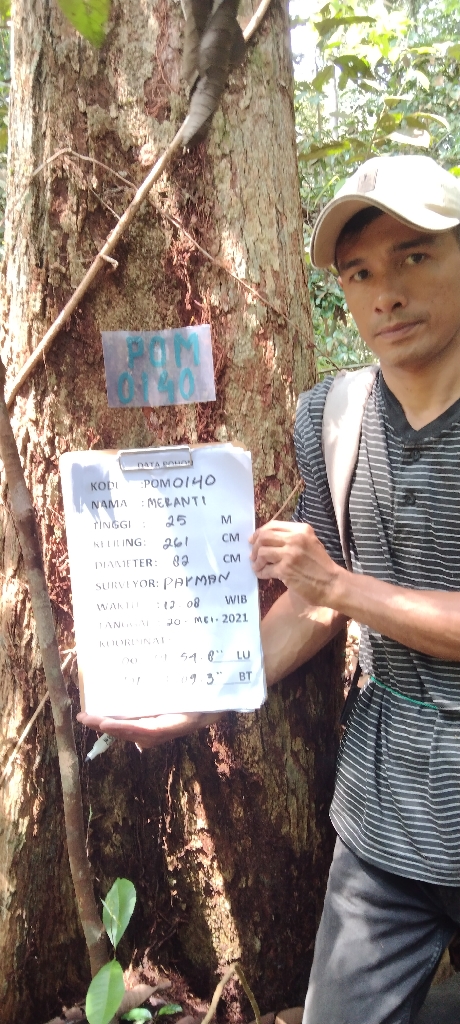 POM
0140
DATA POHON
KODE :POM0140
NAMA :MERANTI
TINGGI : 25 M
KELILING: 261 CM
DIAMETER: 82 CM
SURVEYOR: PAYMAN
WAKTU :12.08 WIB
TANGGAL :20 - MEI - 2021
KOORDINAT
54.8" LU
9.3" BT